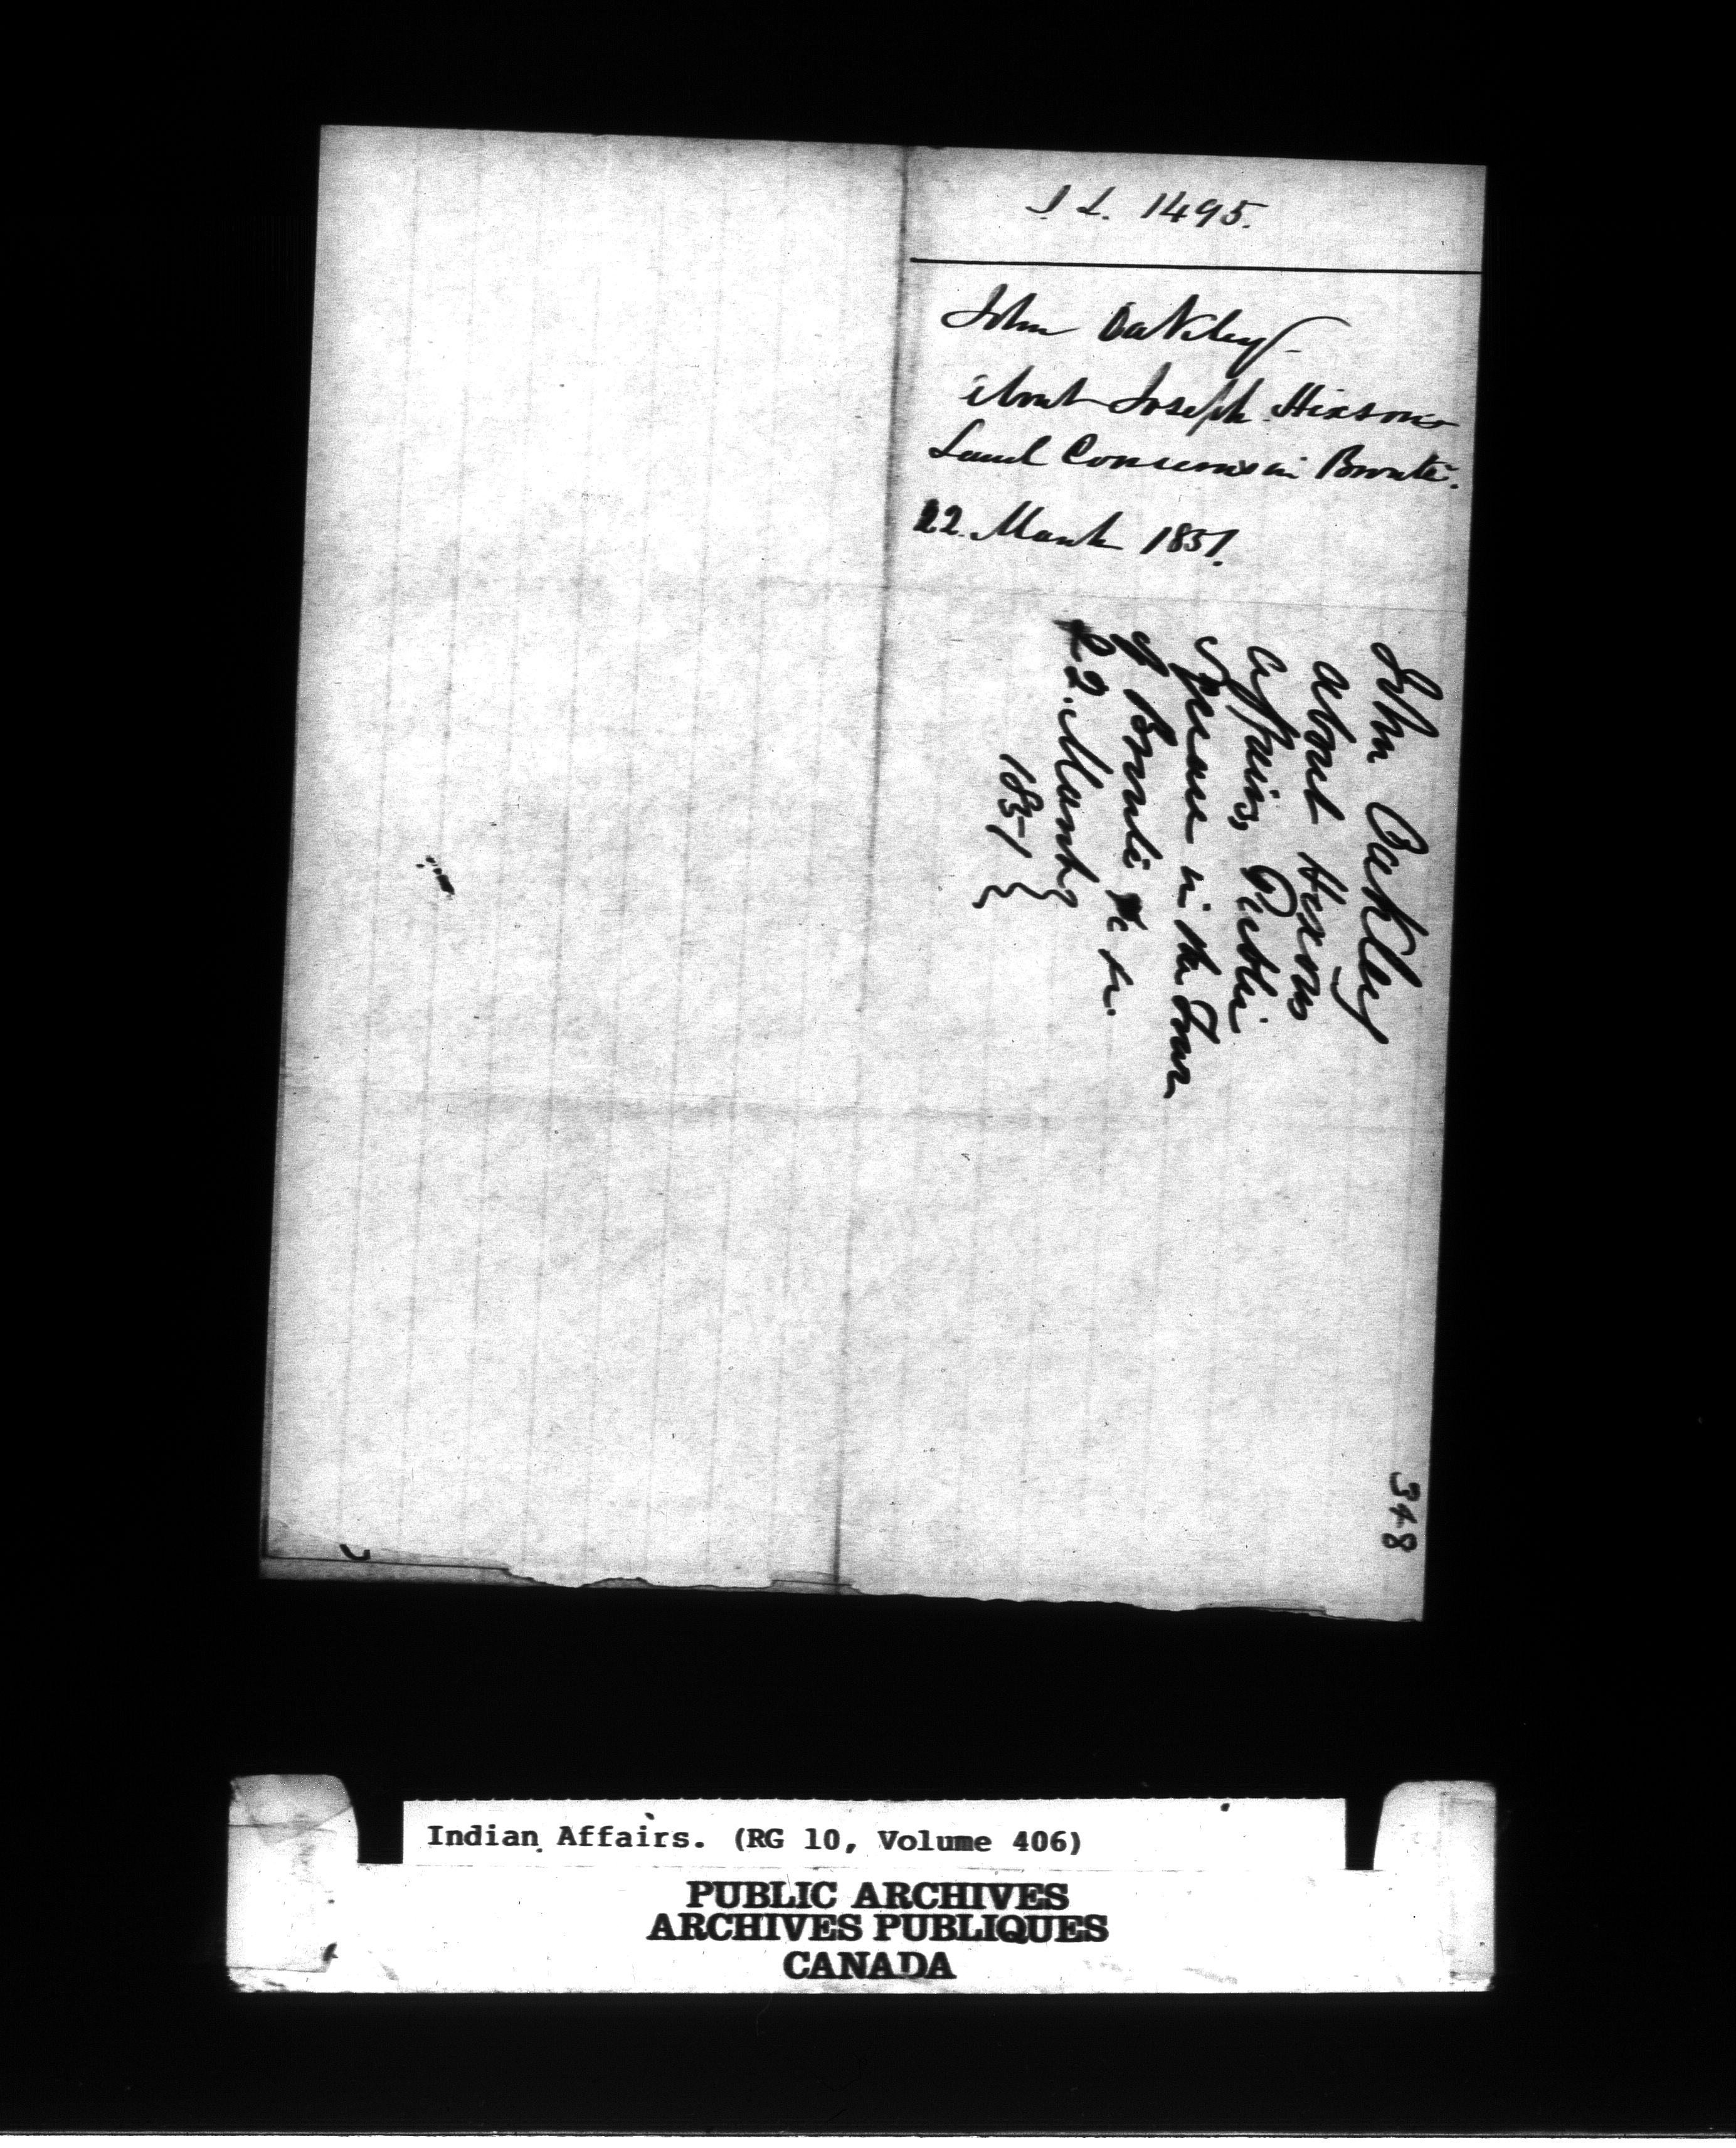 I L. 1495.
John Oakley
about Joseph Hixsons
Land Concerns in Bronte.
22. March 1851.
John Oakley
about Hixons
affairs, Public
Square in the Town
of Bronte &c &c.
22. March
1851
348
Indian Affairs. (RG 10, Volume 406)
PUBLIC ARCHIVES
ARCHIVES PUBLIQUES
CANADA